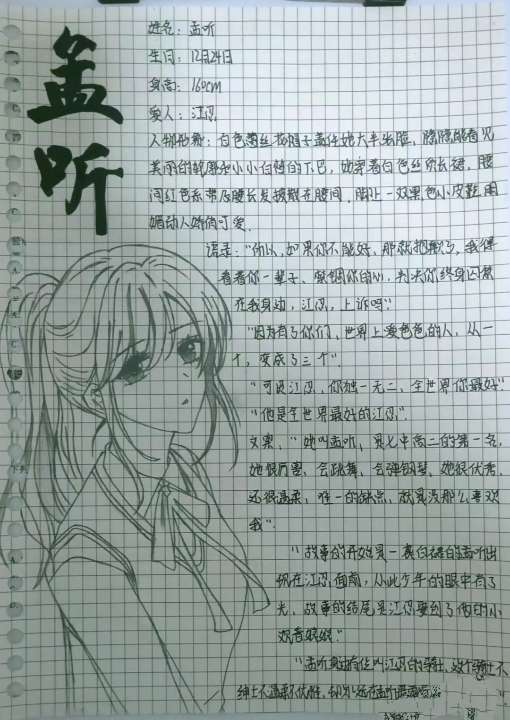 孟听
姓名：孟听
生日：12月24日
身高：160cm
爱人：江忍
人物形象：白色蕾丝花帽子盖住她大半张脸，隐隐能看见
美丽的轮廓和小小白皙的下巴，她穿着白色丝质长裙，腰
间红色系带及腰长发披散在腰间，脚上一双黑色小皮鞋，明
媚动人娇俏可爱。
语录：“所以，如果你不能好，那就把教了，我得
看着你一辈子，紧锢你的心，判决你终身囚禁
在我身边，江忍，上诉吗？”
“因为有了你们，世界上爱色色的人，从一
个，变成了三个”。
“可是江忍，你独一无二，全世界你最好”
“他是全世界最好的江忍”。
文案：“她叫孟听，是七中高二的第一名，
她很厉害，会跳舞，会弹钢琴，她很优秀，
还很温柔，唯一的缺点，就是没那么喜欢
我”。
“故事的开始是一袭白裙的孟听出
现在江忍面前，从此少年的眼中有了
光，故事的结尾是江忍娶到了他的小
观音娘娘”
“孟听身边有位叫江忍的骑士，这个骑士不
绅士不温柔不优雅，